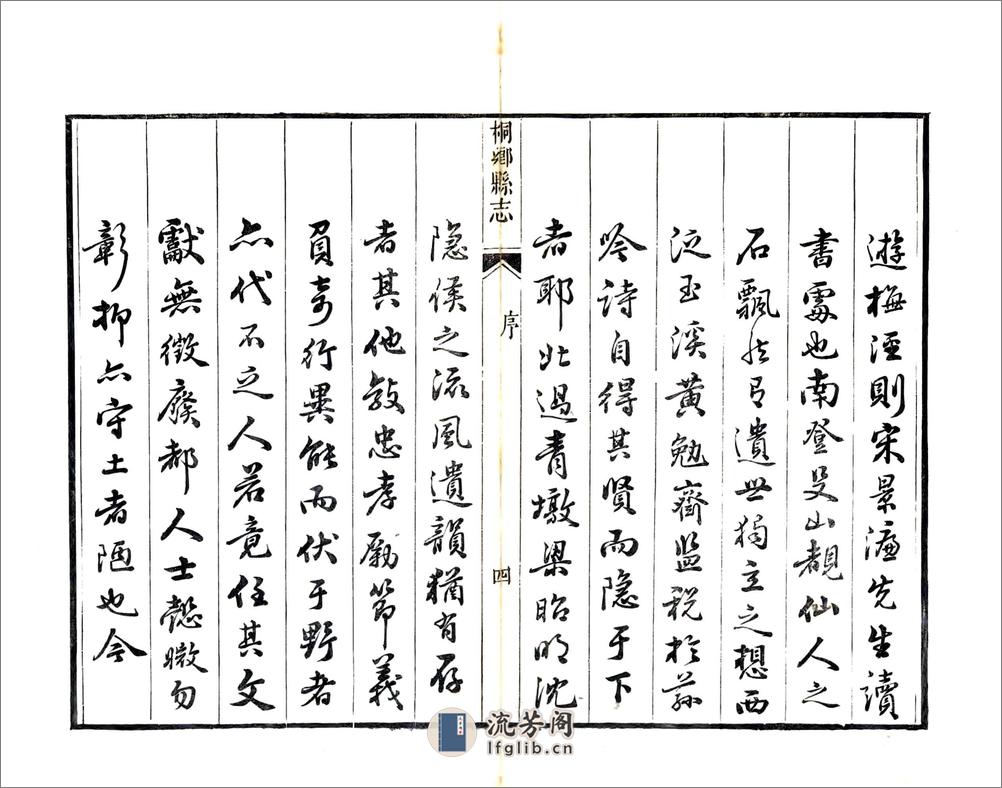 遊梅涇則宋景濂先生讀
書處也南登殳山覩仙人之
石飄然有遺世獨立之想西
泛玉溪黃勉齋監税於茲
吟詩自得其賢而隱于下
者耶北過青墩梁昭明沈
桐鄉縣志
序
四
隱侯之流風遺韻猶有存
者其他敦忠孝勵節義
負奇行異能而伏于野者
亦代不乏人若竟任其文
獻無徵廢都人士懿媺勿
彰抑亦守土者陋也今
流芳阁
lfglib.cn